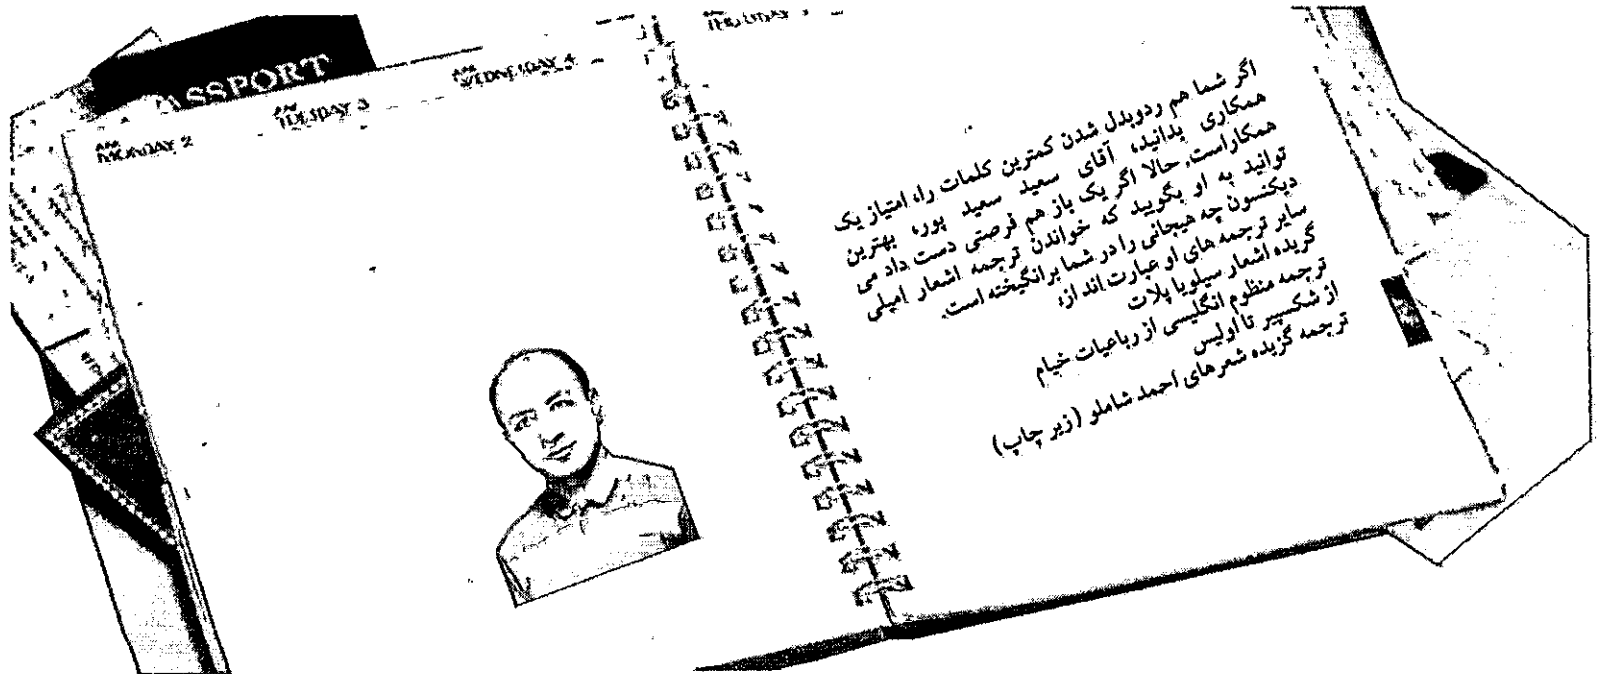 PASSPORT
MONDAY 2
TUESDAY 3
WEDNESDAY 4
THURSDAY
اگر شما هم ردوبدل شدن کمترین کلمات را، امتیاز یک
همکاری بدانید، آقای سعید سعید پور، بهترین
همکاراست. حالا اگر یک باز هم فرصتی دست داد می
توانید به او بگویید که خواندن ترجمه اشعار امیلی
دیکنسون چه هیجانی را در شما برانگیخته است.
سایر ترجمه های او عبارت اند از:
گزیده اشعار سیلویا پلات
ترجمه منظوم انگلیسی از رباعیات خیام
از شکسپیر تا اولیس
ترجمه گزیده شعرهای احمد شاملو (زیر چاپ)